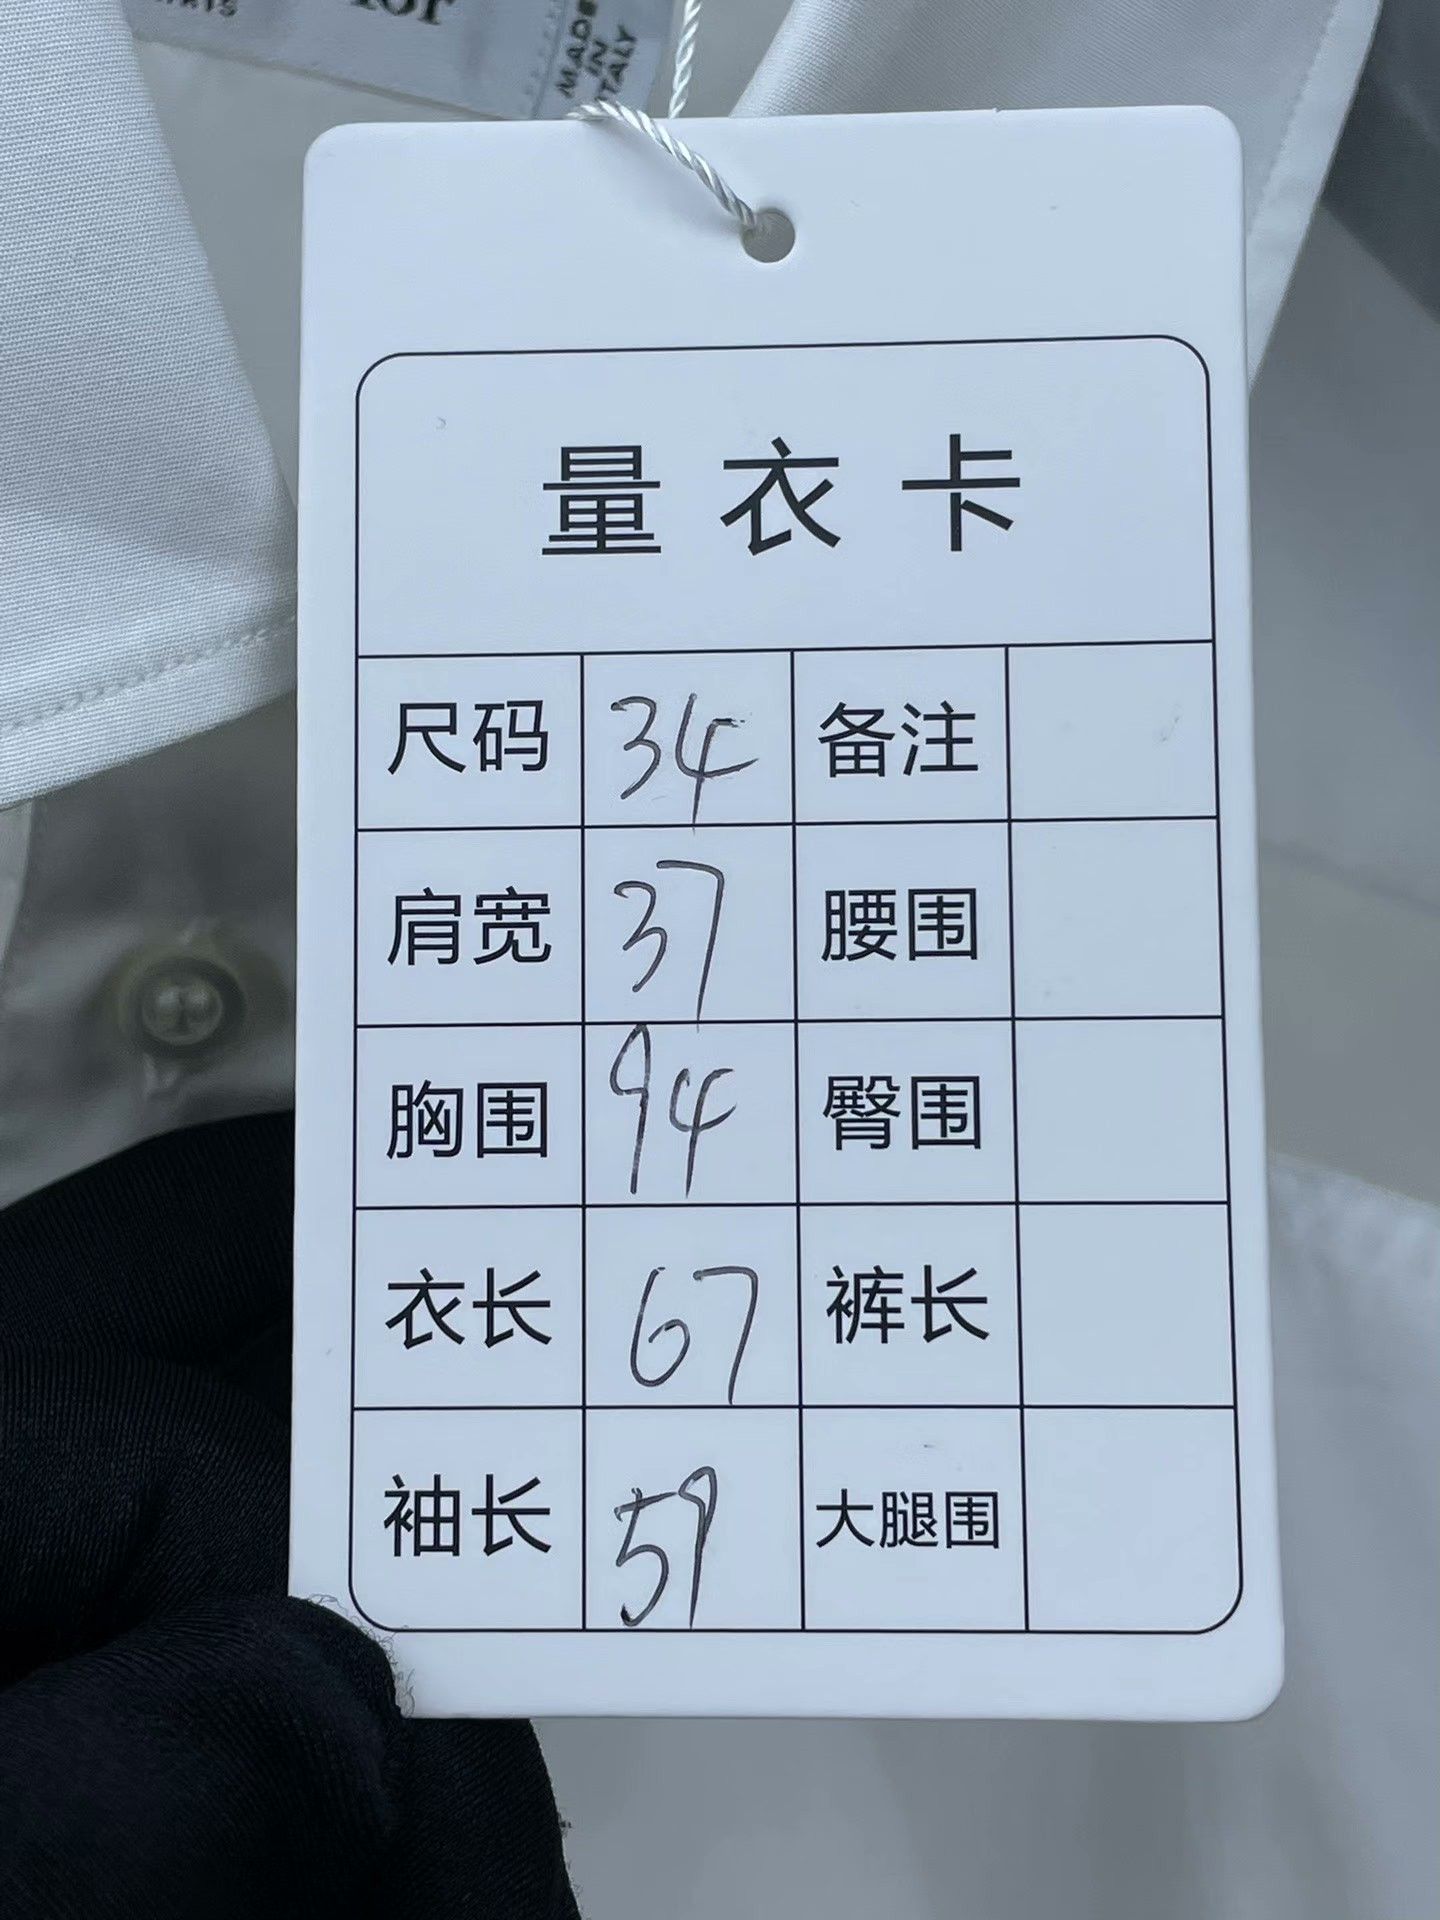 MADE
IN
ITALY
量衣卡
尺码 34 备注
肩宽 37 腰围
胸围 94 臀围
衣长 67 裤长
袖长 59 大腿围